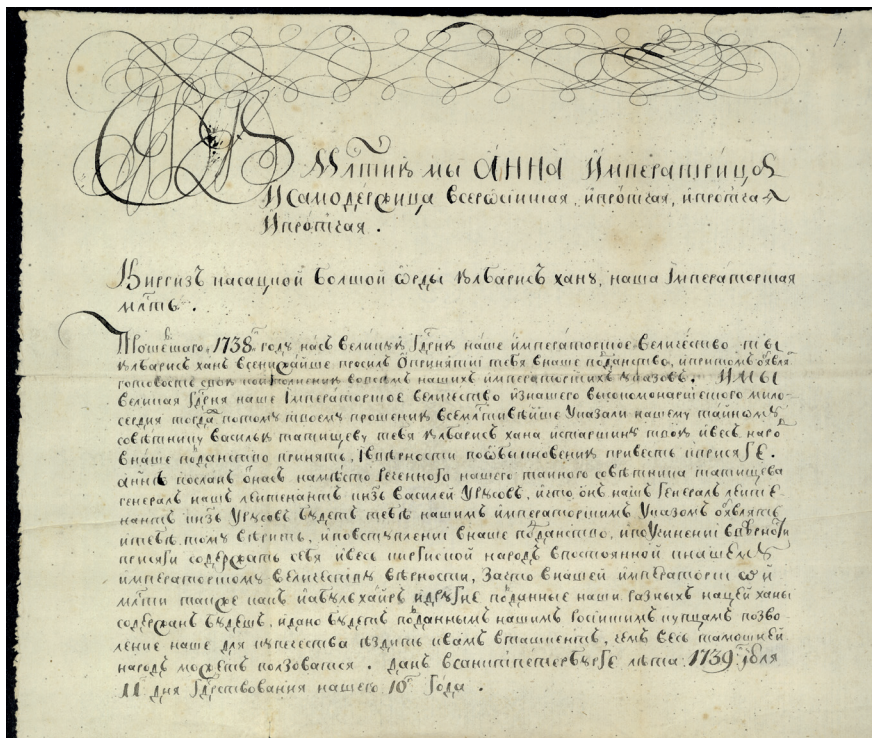 1.
Бжїею Млтїю мы АННА Императрица
и самодержица всерωсіиская, и протчая, и протчая
и протчая.
Киргизъ касацкой болшой ѡрды Юлбарисъ хану, наша Імператорская
млть.
Прошешаго 1738г году насъ великую Гдрню наше императорское величество ты
Юлбарисъ ханъ всенижайше просилъ о принятіи тебя в наше поданство, и притомъ обявя
готовость свою к исполнению во всемъ нашихъ императорскихъ указовъ. И мы
великая Гдрня наше Імператорское величество из нашего высокомонаршеского мило-
сердия тогда по тому твоему прошению всемлтивейше указали нашему тайному
советнику Василью Татищеву тебя Юлбарисъ хана и старшину твою и весь народ
в наше поданство принять, і к верности по обыкновению привесть к присяге.
а ннѣ посланъ о насъ на место реченного нашего тайного советника Татищева
генералъ нашъ леитенантъ кнзь Василей Урусовъ, и что онъ нашъ генералъ леите
нантъ кнзь Урусовъ будетъ тебѣ нашимъ императорскимъ указомъ обявлять
и тебѣ тому верить, и по вступлении в наше поданство, и по учинении в верности
присяги содержать себя и весь киргиской народъ в постоянной к нашему
императорскому величеству вѣрности, за что в нашей императорской
млти также какъ и Абулъхаиръ и другие поданные наши разныхъ нацей ханы
содержанъ будешъ, и дано будетъ поданнымъ нашимъ росиискимъ купцамъ позво-
ление наше для купечества ѣздить к вамъ в Ташкентъ, чемъ весь тамошней
народъ можетъ ползоватся. Данъ в Санктъпетербурге лѣта 1739г июля
11 дня Гдрствования нашего 10г года.